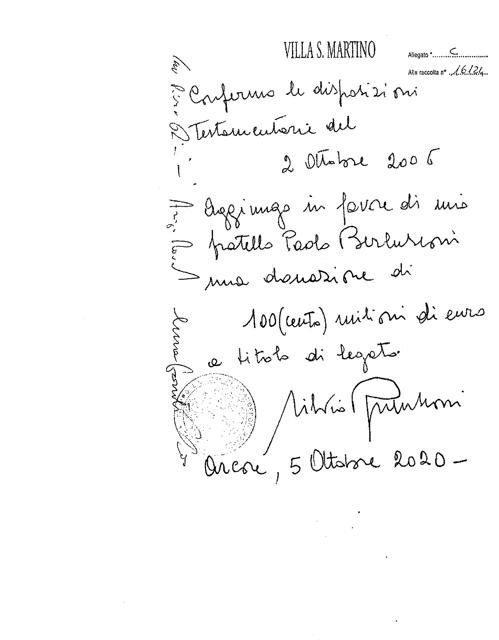 VILLA S. MARTINO
Allegato "......C......
Alla raccolta n° ..16124..
Confermo le disposizioni
Testamentarie del
2 Ottobre 2006
Aggiungo in favore di mio
fratello Paolo Berlusconi
una donazione di
100 (cento) milioni di euro
a titolo di legato.
Silvio Berlusconi
Arcore, 5 Ottobre 2020 –